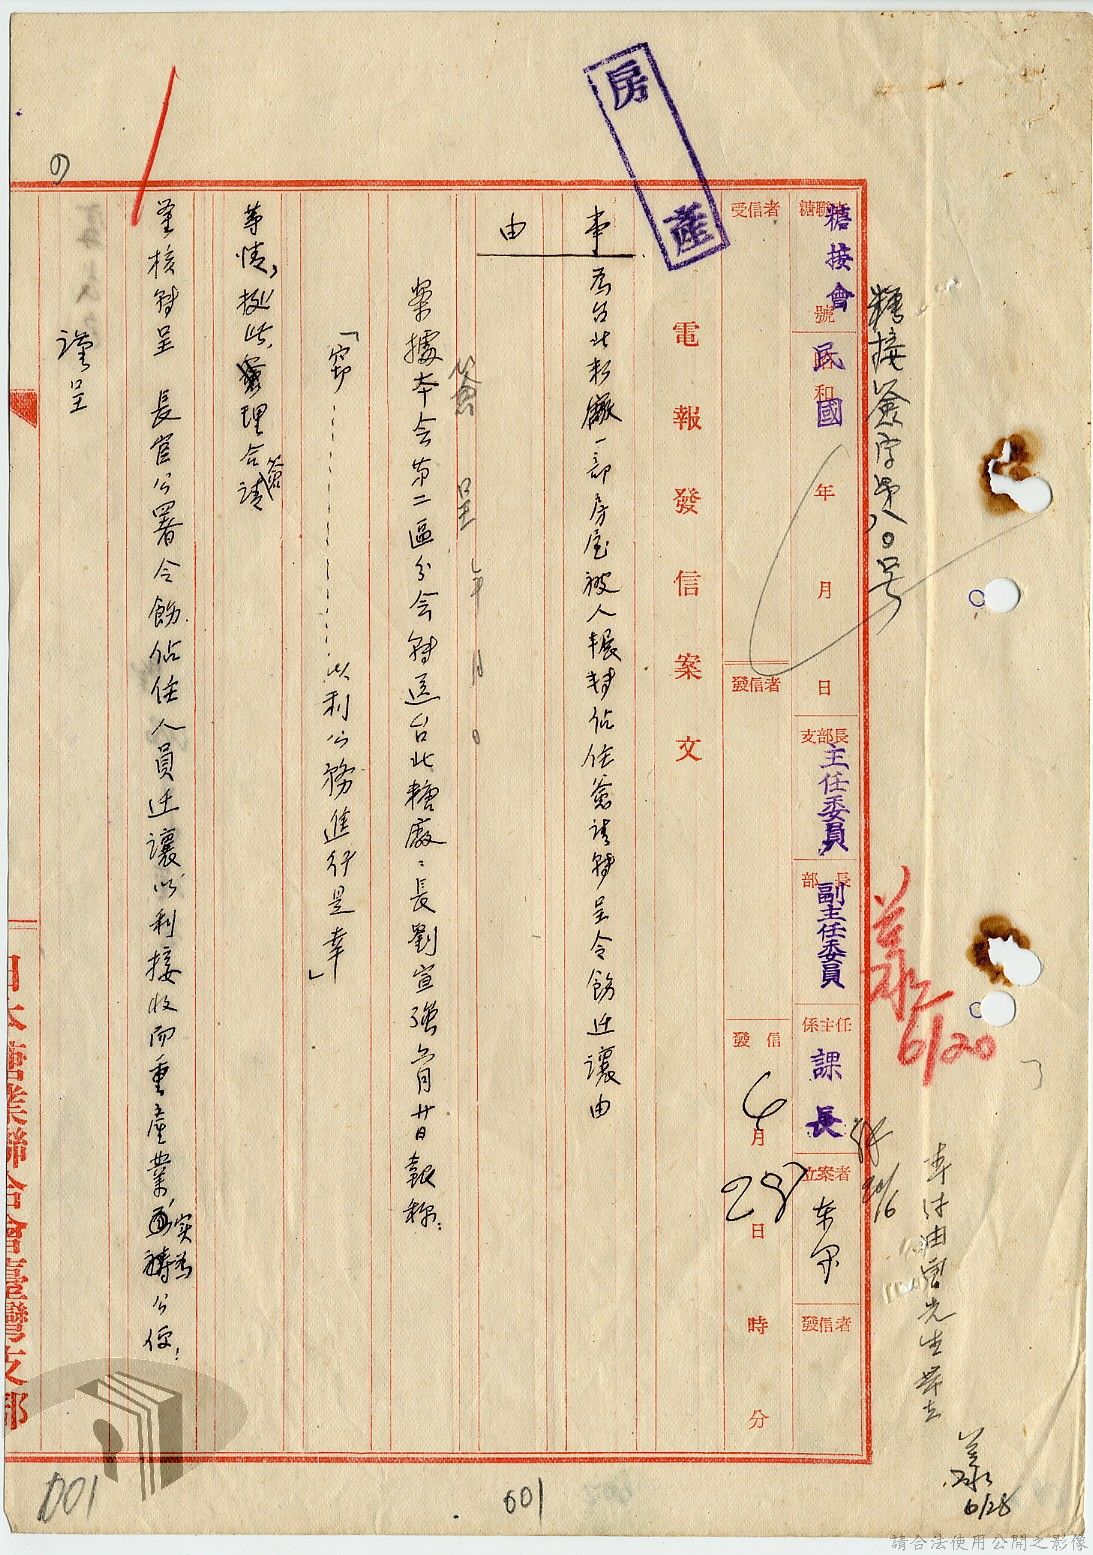 房產
糖接簽字第八〇号
糖聯 號
糖接會
昭和 年 月 日
民國
支部長
主任委員
部長
副主任委員
係主任
課長
立案者
發信者
受信者
發信者
發信 6月28日 時 分
6/20
專付油印先生
6/28
電報發信案文
事由
為台北糖廠一部房屋被人輾轉佔住簽請轉呈令飭迁讓由
簽呈 年 月 日
案據本会第二區分会轉送台北糖廠厂長劉宣强六月廿日報称：
「竊……………以利公務進行是幸」
等情，据此，理合簽請
鉴核轉呈 長官公署令飭佔住人員迁讓以利接收而重產業，实為公便！
謹呈
日本糖業聯合會臺灣支部
001
001
請合法使用公開之影像